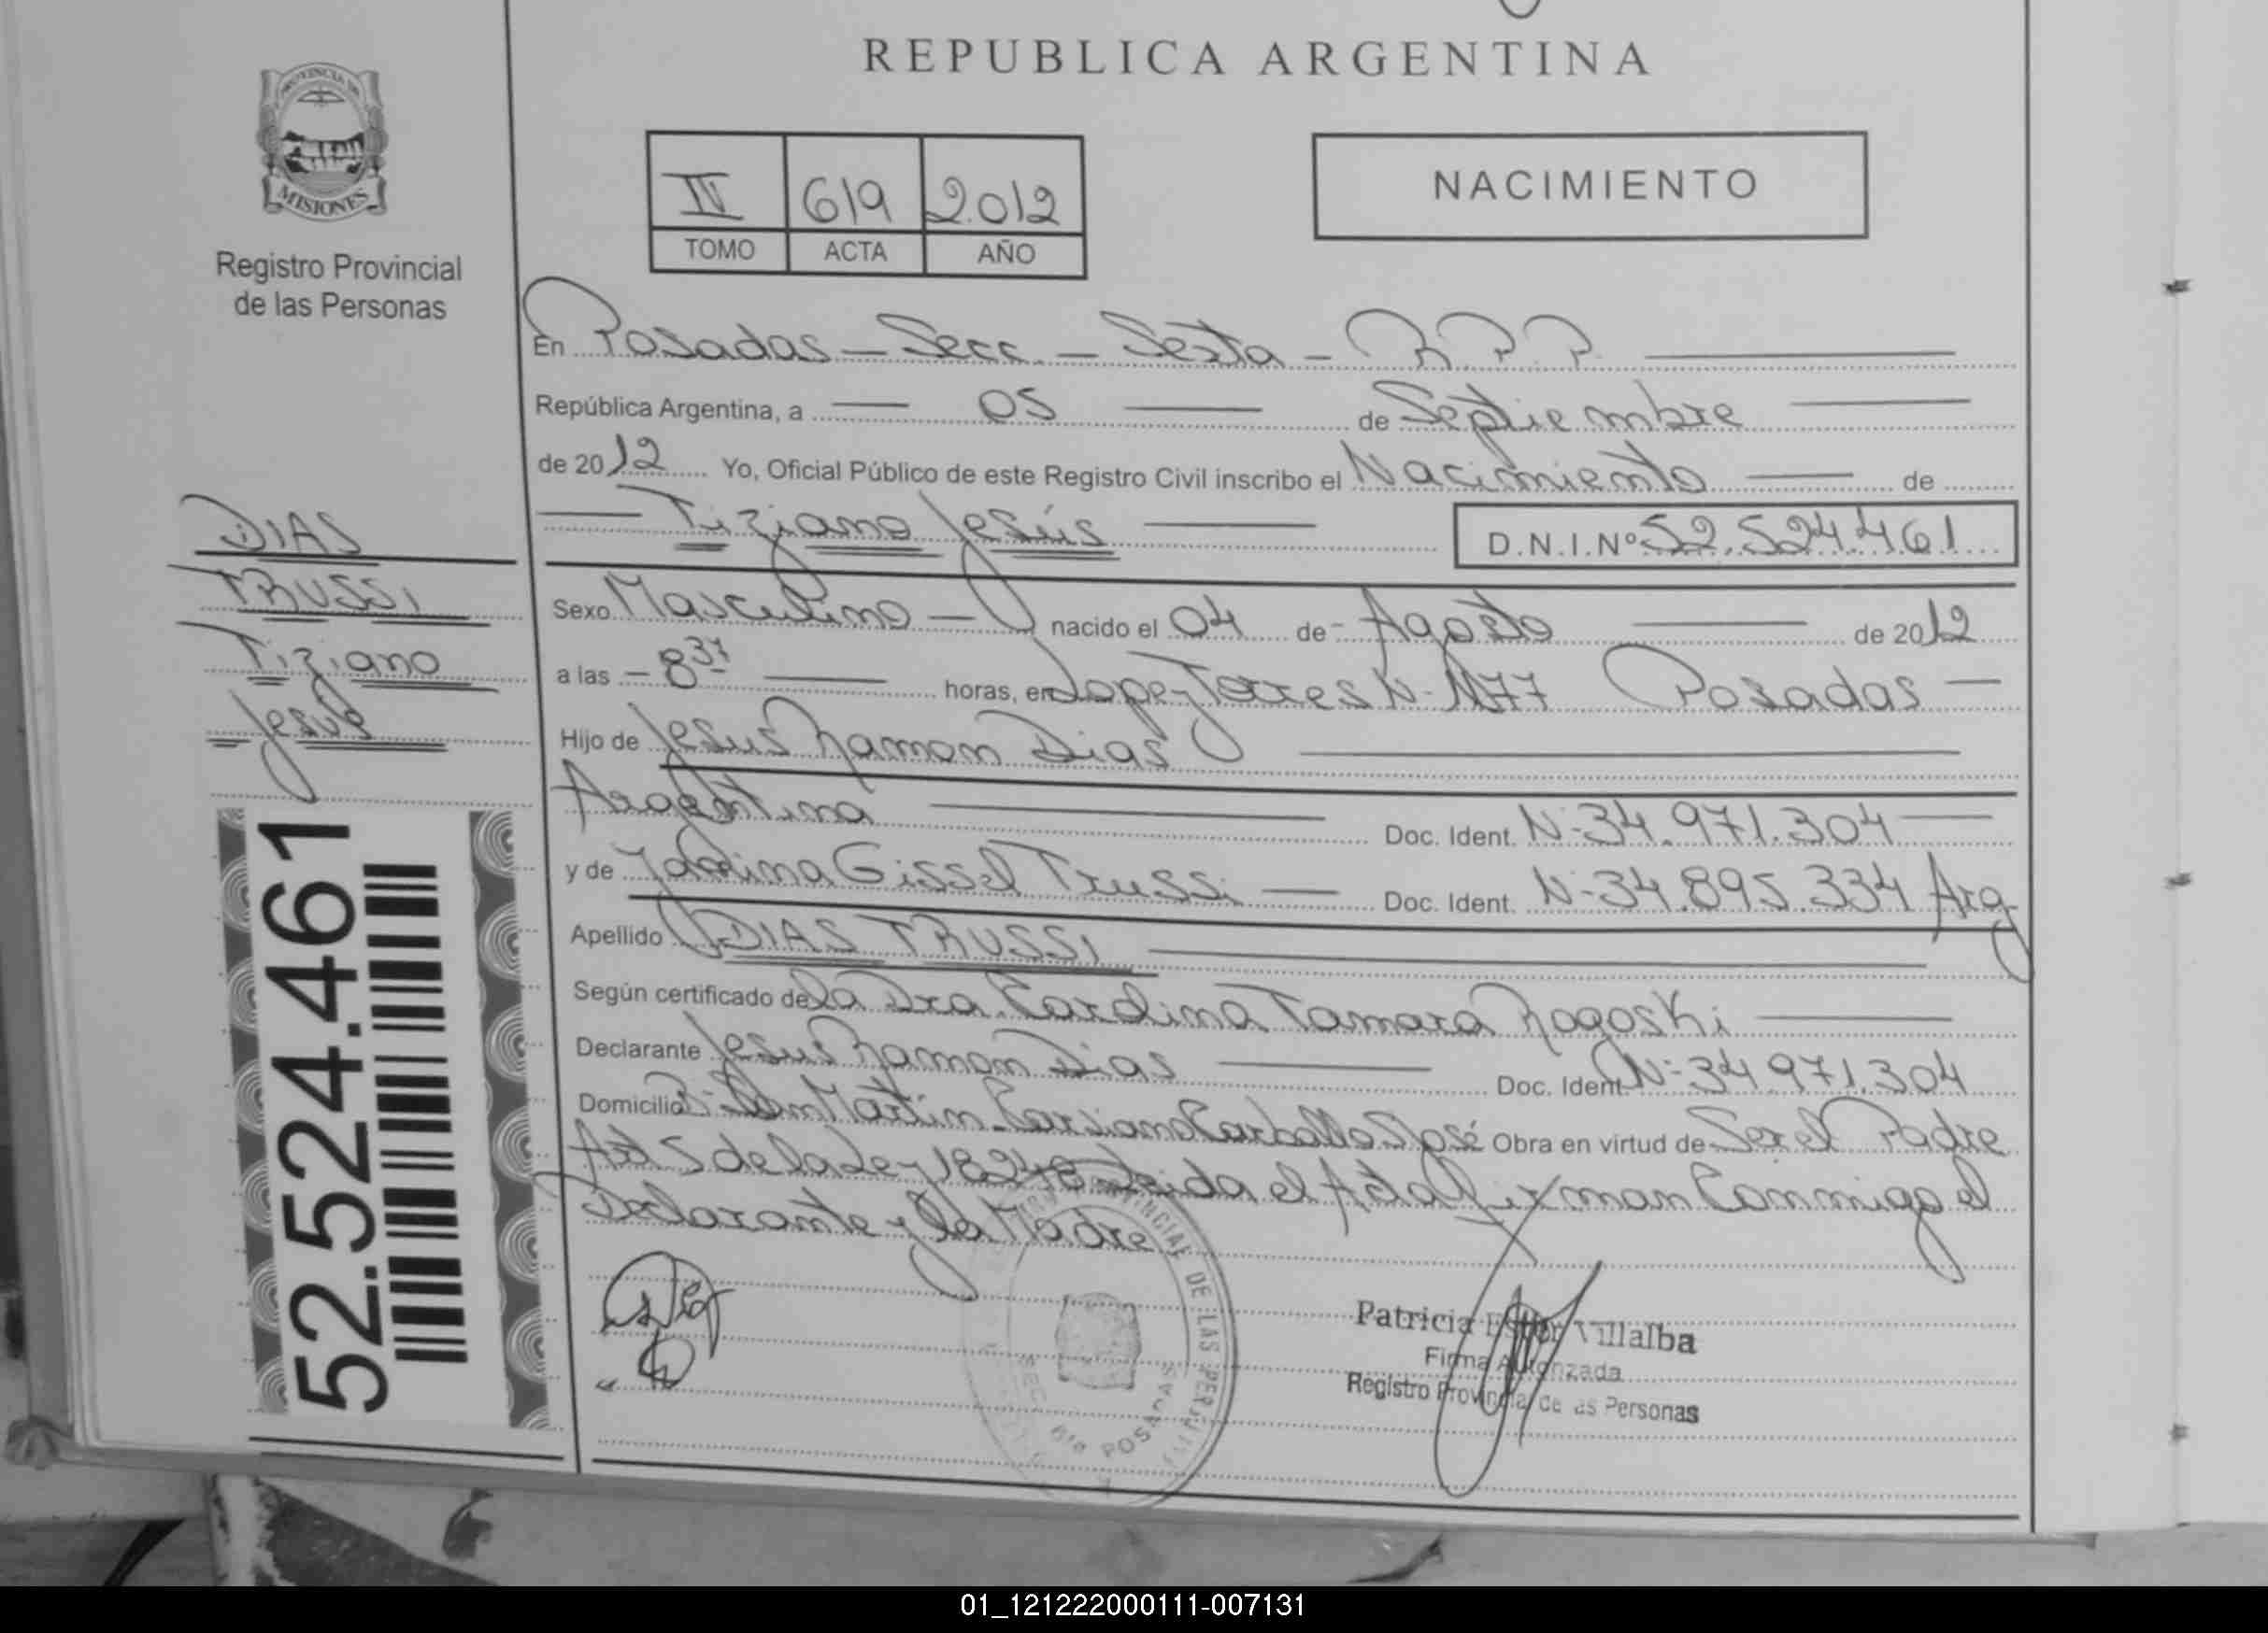 REPUBLICA ARGENTINA
PROVINCIA DE
MISIONES
Registro Provincial
de las Personas
IV 619 2012
TOMO ACTA AÑO
NACIMIENTO
En Posadas - Secc. - Sexta - R.P.P.
República Argentina, a 05 de Septiembre
de 2012 Yo, Oficial Público de este Registro Civil inscribo el Nacimiento de
Tiziano Jesús D.N.I.Nº 52.524.461
DIAS
TRUSSI
Tiziano
Jesús
Sexo Masculino nacido el 04 de Agosto de 2012
a las 8 37 horas, en Lopez Torres N- 1177 Posadas
Hijo de Jesus Ramon Dias
Argentina Doc. Ident. N- 34.971.304
y de Gissel Trussi Doc. Ident. N- 34.895.334 Arg
Apellido DIAS TRUSSI
Según certificado de la Dra. Carolina Tamara Rogoski
Declarante Jesus Ramon Dias Doc. Ident. N- 34.971.304
Domicilio San Martin José Obra en virtud de Ser el Padre
Art 5 de la Ley 18248 Leida el Acta Firman Conmigo el
Declarante y la Madre
52.524.461
DE LAS PERSONAS
SEC. 6ta POSADAS
Patricia Ester Villalba
Firma Autorizada
Registro Provincial de las Personas
01_121222000111-007131